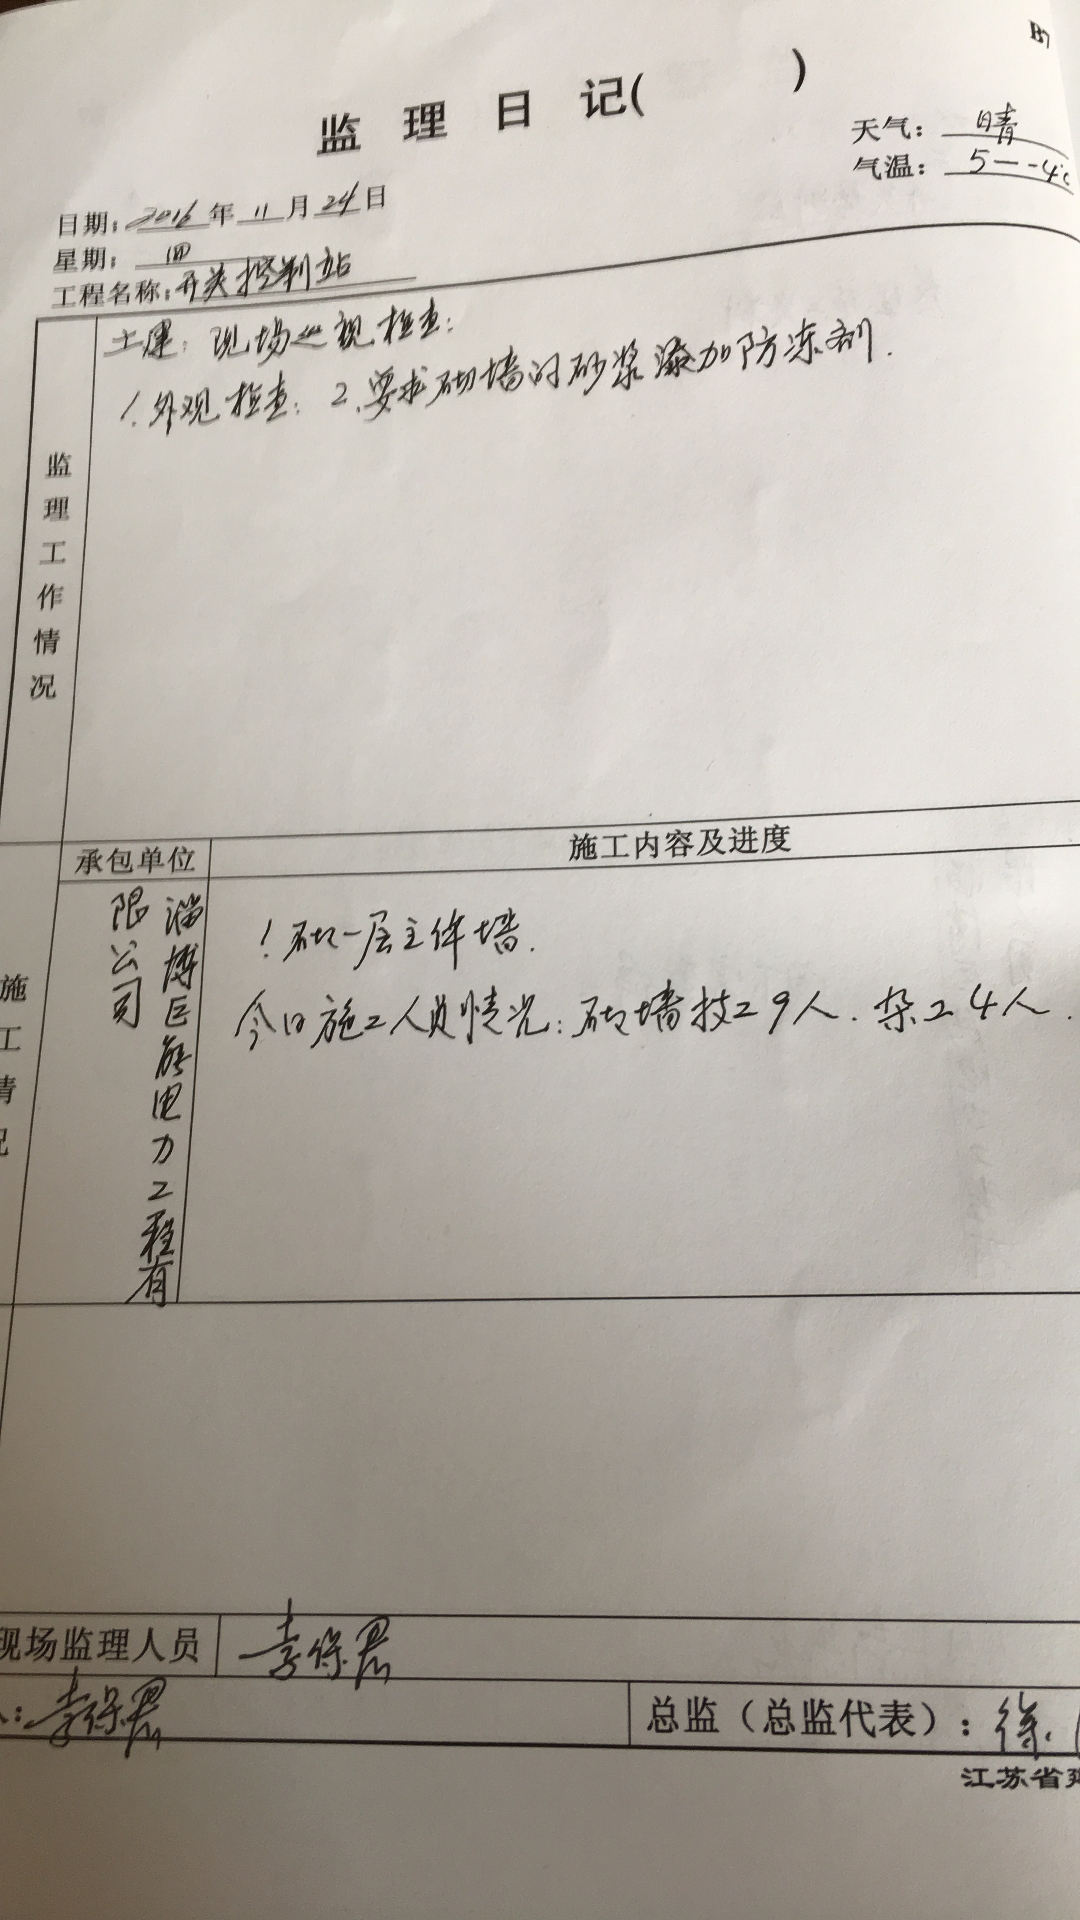 B7
监 理 日 记( )
天气: 晴
气温: 5—-4℃
日期: 2016 年 11 月 24 日
星期: 四
工程名称: 开关控制站
监理工作情况
土建: 现场巡视检查:
1.外观检查: 2.要求砌墙的砂浆添加防冻剂.
承包单位
施工内容及进度
施工情况
淄博巨能电力工程有
限公司
1 砌一层主体墙.
今日施工人员情况: 砌墙技工9人. 杂工4人.
现场监理人员
李保君
人: 李保君
总监（总监代表）: 徐
江苏省